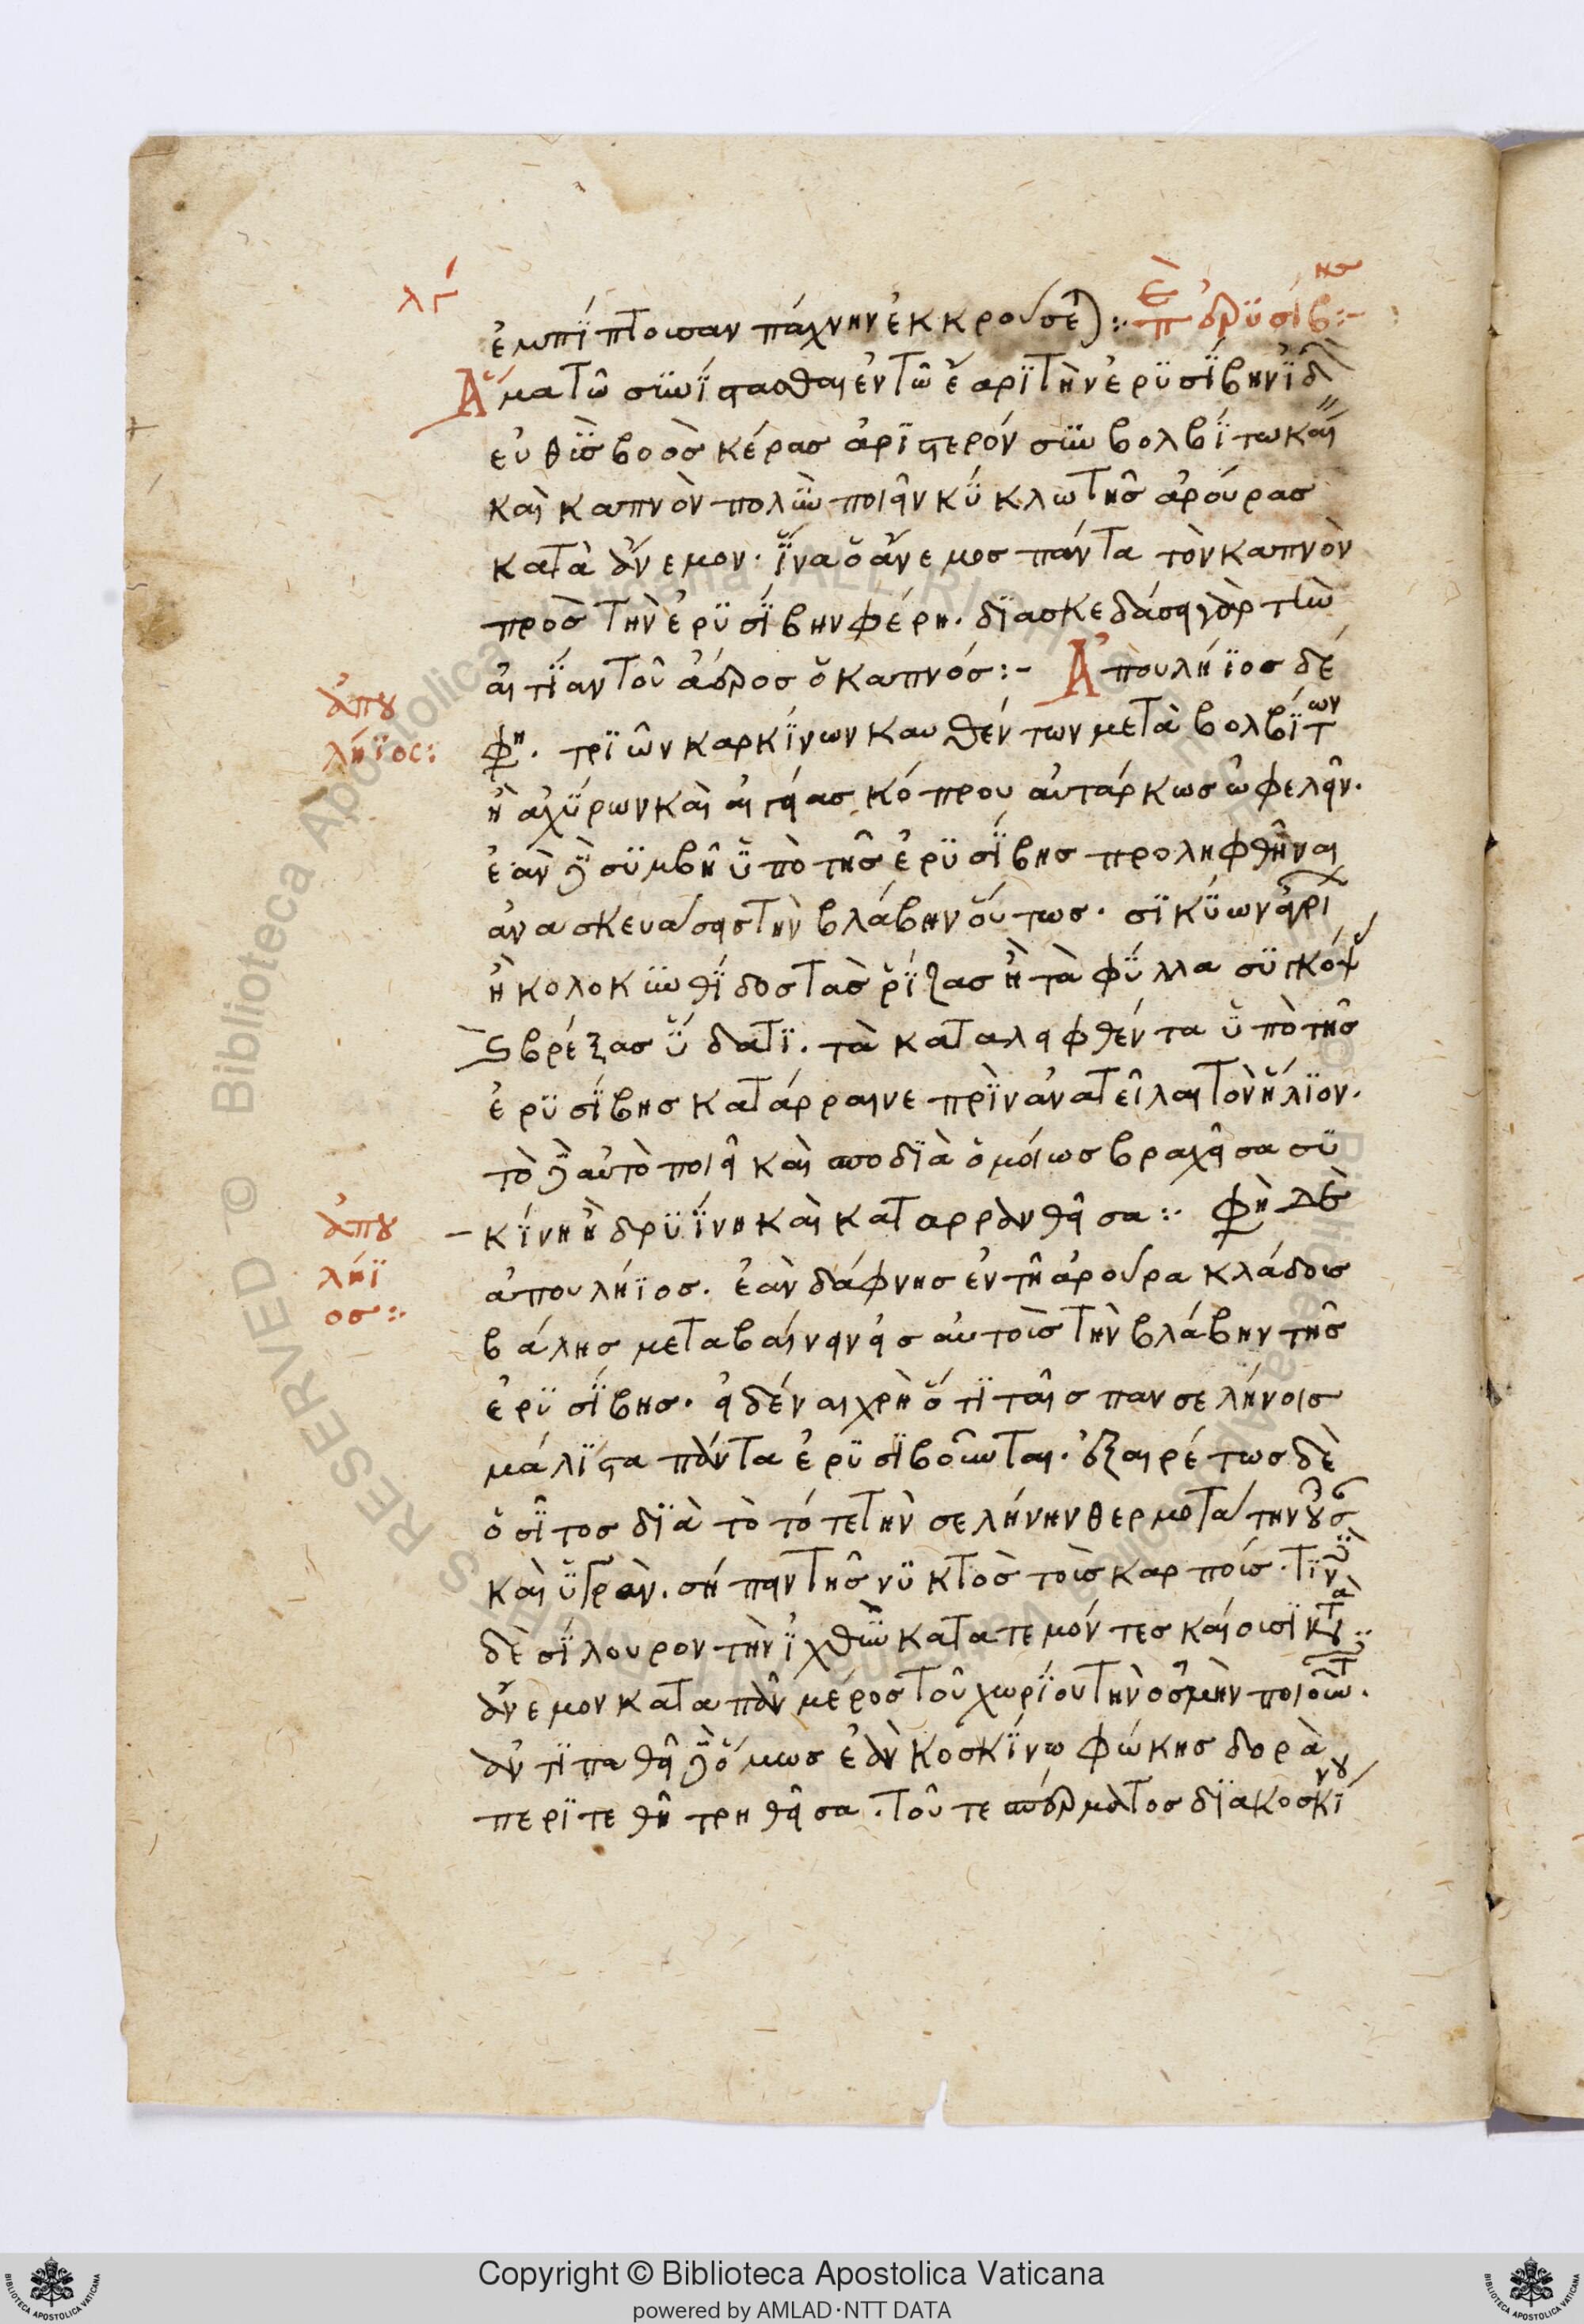 λγ
ἐμπίπτουσαν πάχνην ἐκκρούσει :· Περὶ ἐρυσίβης :-
Ἅμα τῶ συνίστασθαι ἐν τῶ ἔαρι τὴν ἐρυσίβην ἰδὼν
εὐθὺς βοὸς κέρας ἀριστερόν σὺν βολβίτω καῖε
καὶ καπνὸν πολὺν ποιεῖν κύκλω τῆς ἀρούρας
κατὰ ἄνεμον· ἵνα ὁ ἄνεμος πάντα τὸν καπνὸν
πρὸς τὴν ἐρυσίβην φέρη. διασκεδάσει γὰρ τὴν
αἰτίαν τοῦ ἀέρος ὁ καπνός :- Ἀπουλήϊος δέ
ἀπου
λήϊος :
φησι. τριῶν καρκίνων καυθέντων μετὰ βολβίτων
ἢ ἀχύρων καὶ αἰγείας κόπρου αὐτάρκως ὠφελεῖν.
ἐὰν δὲ συμβῆ ὑπὸ τῆς ἐρυσίβης προληφθῆναι
ἀνασκευάσεις τὴν βλάβην οὕτως. σικύων ἀγρίων
ἢ κολοκυνθίδος τὰς ῥίζας ἢ τὰ φύλλα συγκόψας
καὶ βρέξας ὕδατι. τὰ καταληφθέντα ὑπὸ τῆς
ἐρυσίβης κατάρραινε πρὶν ἀνατεῖλαι τὸν ἥλιον.
τὸ δὲ αὐτὸ ποιεῖ καὶ σποδιὰ ὁμοίως βραχεῖσα συ
κίνη ἢ δρυΐνη καὶ καταρρανθεῖσα :· φησὶ δὲ
ἀπου
λήϊ
ος :·
ἀπουλήϊος. ἐὰν δάφνης ἐν τῆ ἀρούρα κλάδους
βάλης μεταβαίνειν εἰς αὐτοὺς τὴν βλάβην τῆς
ἐρυσίβης. εἰδέναι χρὴ ὅτι ταῖς πανσελήνοις
μάλιστα πάντα ἐρυσιβοῦνται. ἐξαιρέτως δὲ
ὁ σῖτος διὰ τὸ τότε τὴν σελήνην θερμοτάτην οὖσαν
καὶ ὑγρὰν. σήπειν τῆς νυκτὸς τοῖς καρποῖς. τινὲς
δὲ σίλουρον τὴν ἰχθὺν κατατεμόντες καίουσι κατὰ
ἄνεμον κατὰ πᾶν μέρος τοῦ χωρίου τὴν ὀσμὴν ποιοῦντες.
ἀντιπαθεῖ δὲ ὅμως ἐὰν κοσκίνω φώκης δορὰ
περιτεθῆ τρηθεῖσα. τοῦ τε σπέρματος διὰ κοσκίνου